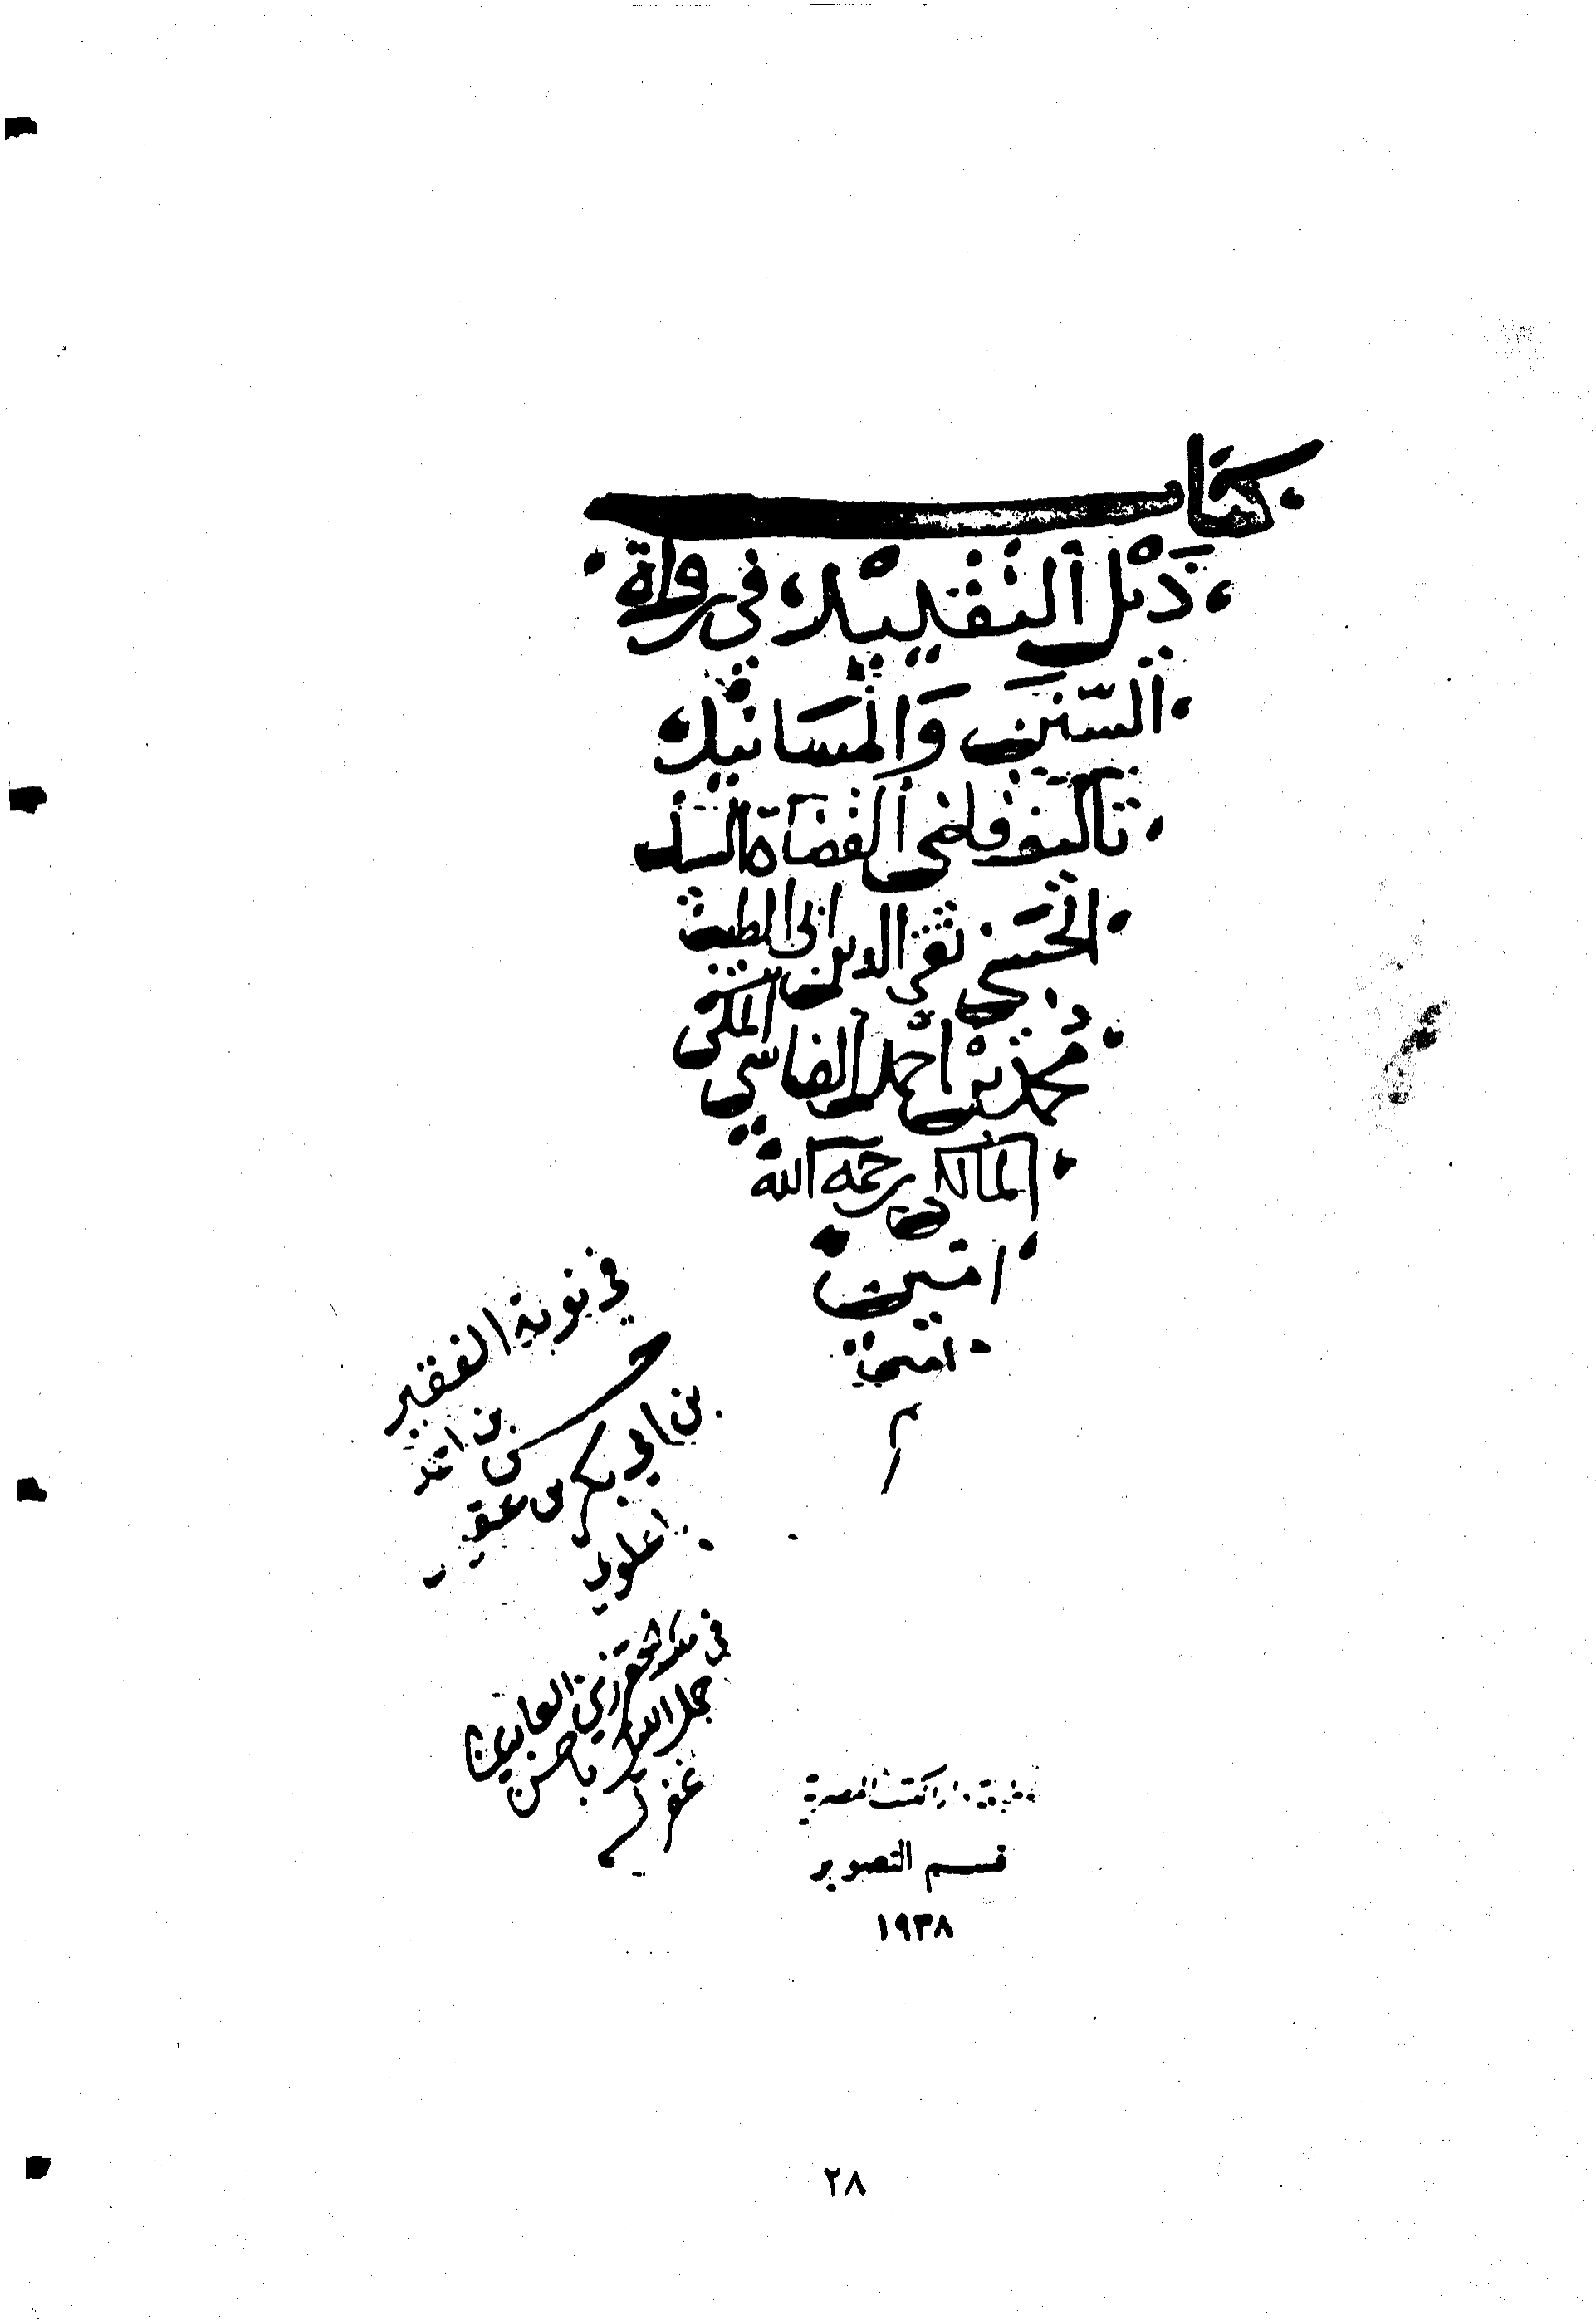 كتاب
ذيل التقييد في رواة
السنن والمسانيد
تأليف قاضي القضاة السيد
الحسني تقي الدين ابي الطيب
محمد بن احمد الفاسي المكي
المالكي رحمه الله
امين
امين
م
في نوبة الفقير
حسن بن احمد
بن ابي بكر بن عقيل
علوي
في زين العابدين
جمل الليل باحسن
غفر له
دار الكتب المصرية
قسم التصوير
١٩٣٨
٢٨